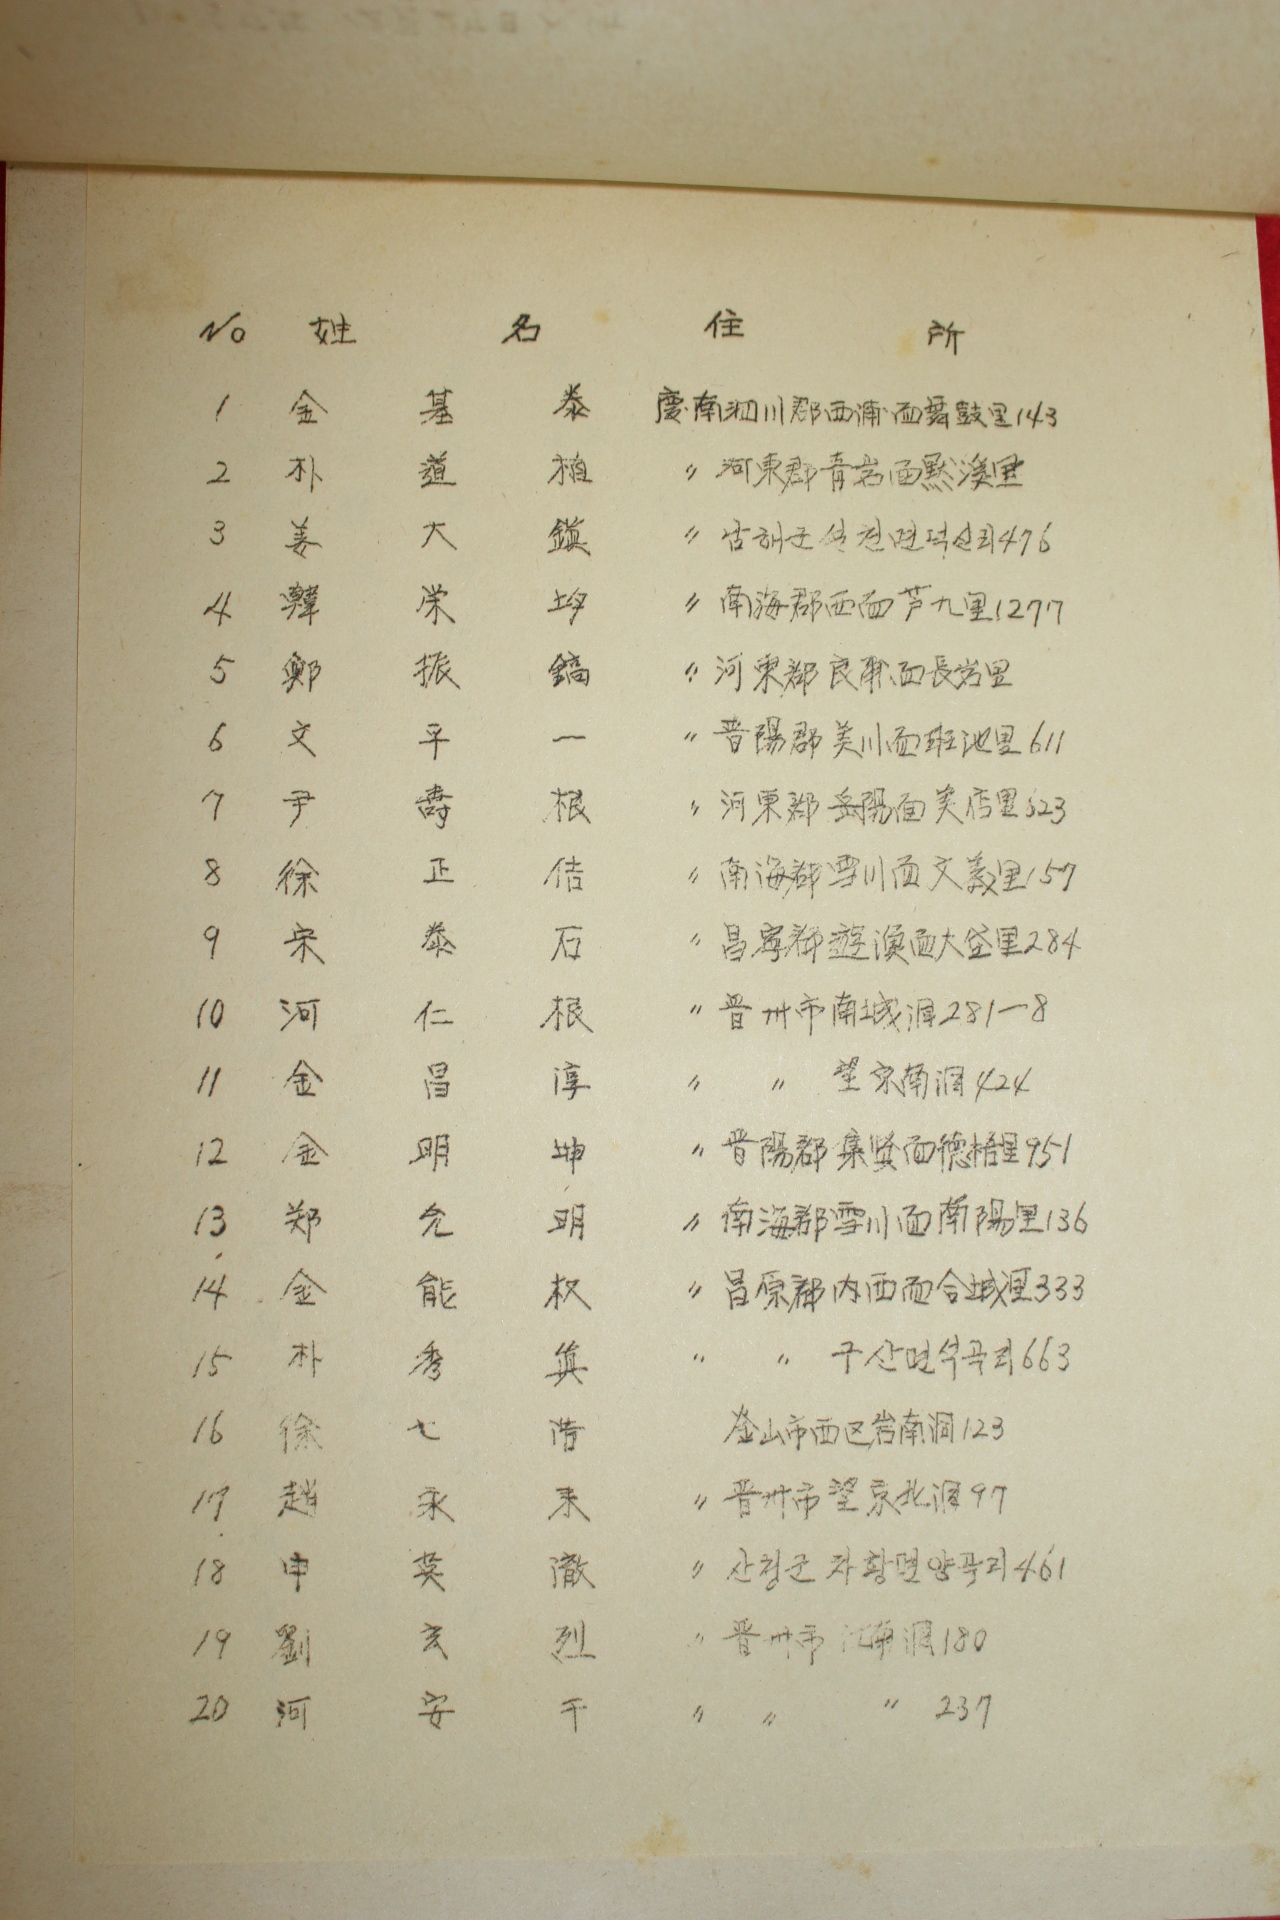 No 姓 名 住 所
1 金 基 泰 慶南泗川郡西浦面舞鼓里143
2 朴 道 植 〃 河東郡青岩面黙溪里
3 姜 大 鎭 〃 남해군설천면덕신리476
4 韓 栄 均 〃 南海郡西面芦九里1277
5 鄭 振 鎬 〃 河東郡良甫面長岩里
6 文 平 一 〃 晋陽郡美川面班池里611
7 尹 壽 根 〃 河東郡岳陽面美店里623
8 徐 正 佶 〃 南海郡雪川面文義里157
9 宋 泰 石 〃 昌寧郡遊漁面大垈里284
10 河 仁 根 〃 晋州市南城洞281-8
11 金 昌 淳 〃 〃 望京南洞424
12 金 明 坤 〃 晋陽郡集賢面德梧里951
13 郑 允 明 〃 南海郡雪川面南陽里136
14 金 能 权 〃 昌原郡内西面合城里333
15 朴 秀 箕 〃 〃 구산면석곡리663
16 徐 七 釜山市西区岩南洞123
17 趙 永 来 〃 晋州市望京北洞97
18 申 英 澈 〃 산청군차황면양곡리461
19 劉 玄 烈 〃 晋州市江南洞180
20 河 安 千 〃 〃 〃 237